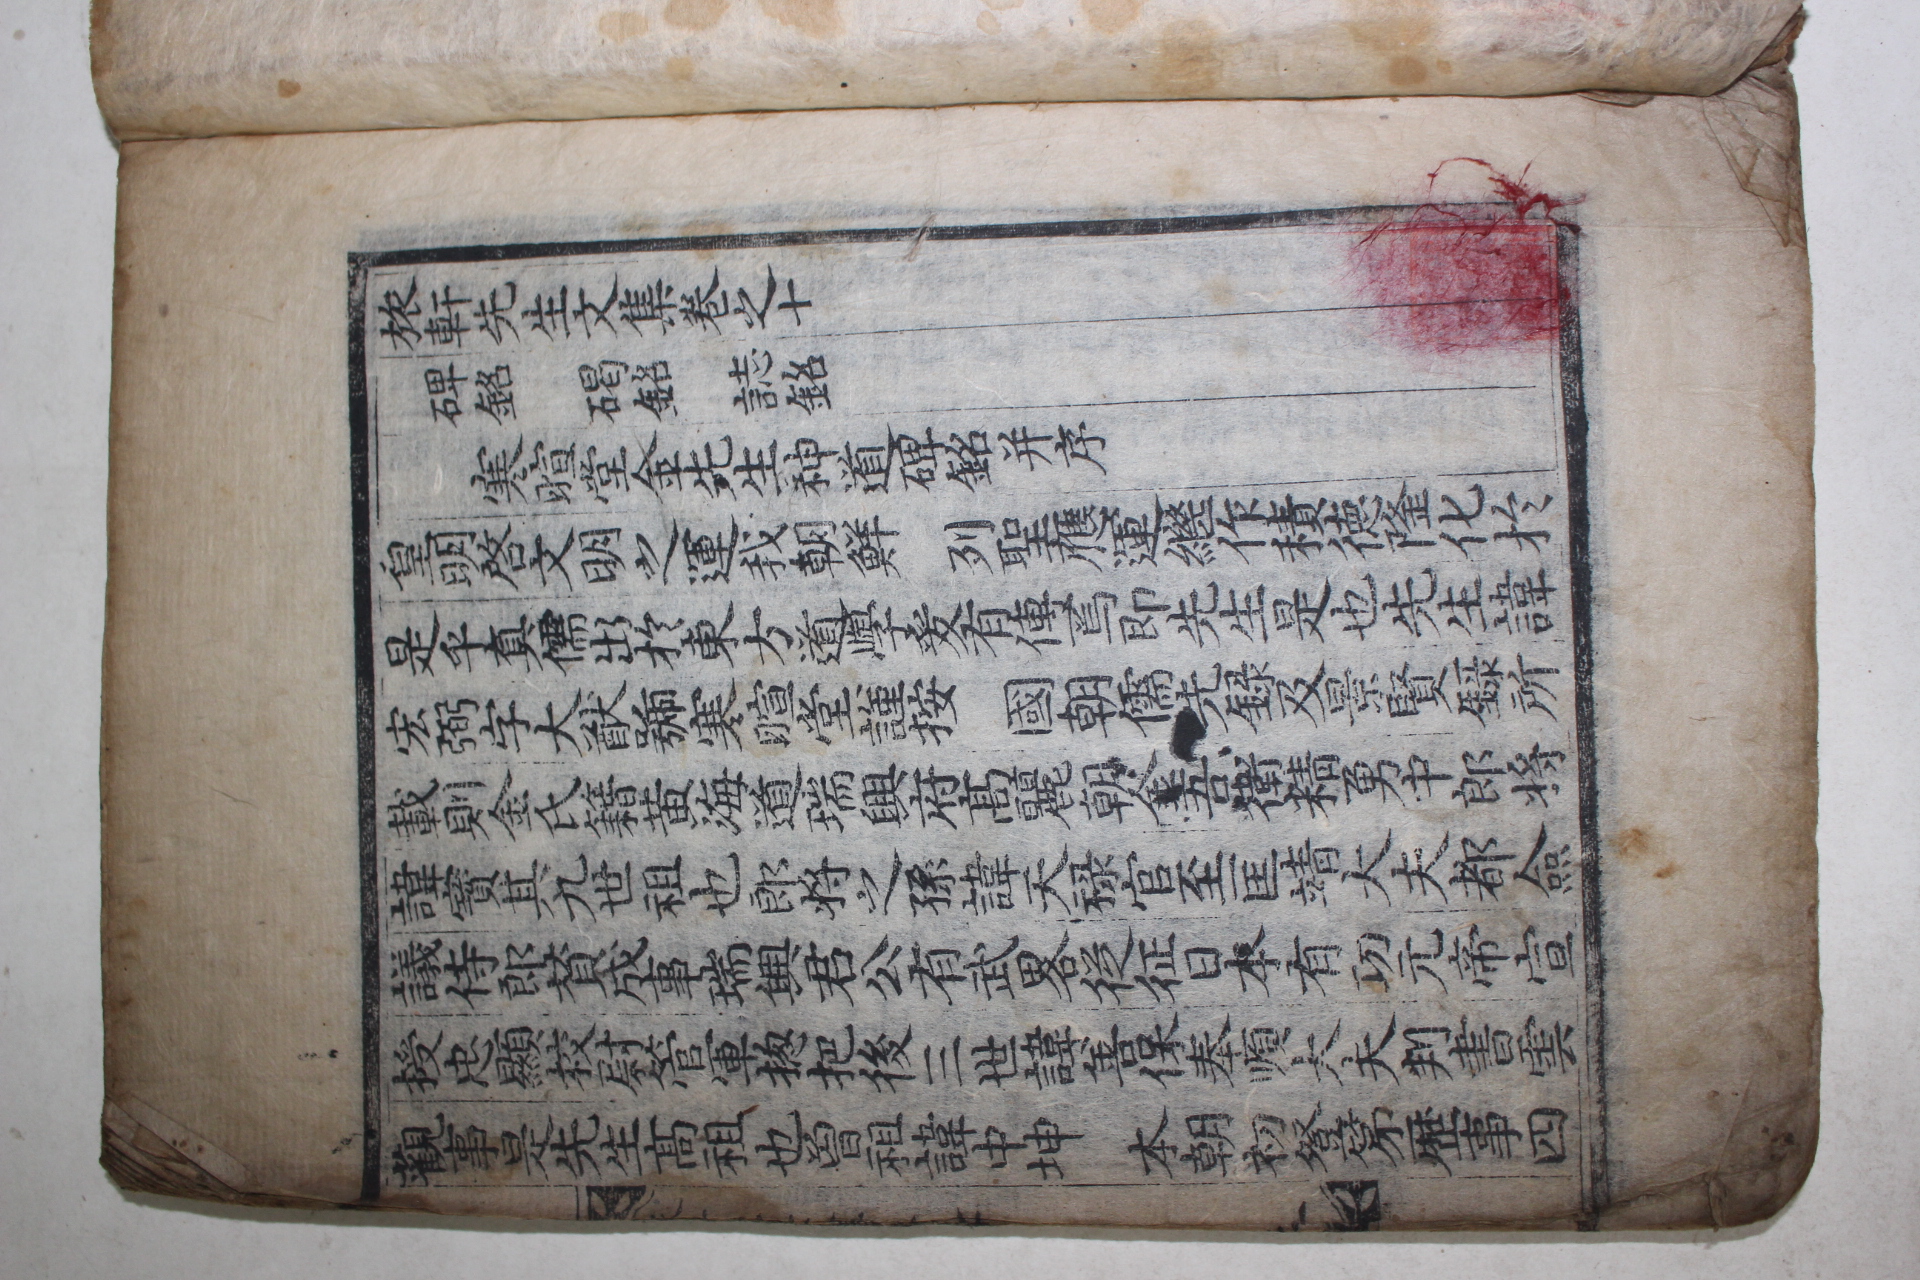 旅軒先生文集卷之十
碑銘 碣銘 誌銘
寒暄堂金先生神道碑銘幷序
皇明啓文明之運我朝鮮 列聖應運繼作積德隆化於
是乎真儒出於東方道學爰有傳焉卽先生是也先生諱
宏弼字大猷號寒暄堂謹按 國朝儒先錄及景賢錄所
載則金氏籍黃海道瑞興府高麗朝金吾衛精勇中郎將
諱寶其九世祖也郎將之孫諱天祿官至匡靖大夫都僉
議侍郎贊成事瑞興君公有武畧從征日本有功元帝宣
授忠顯校尉管軍摠把後三世諱善保奉順大夫判書雲
觀事是先生高祖也曾祖諱中坤 本朝初登第歷事四